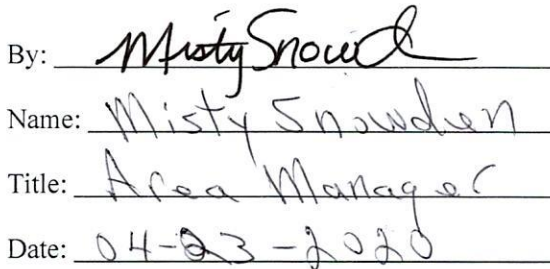 By: Misty Snowd
Name: Misty Snowden
Title: Area Manager
Date: 04-23-2020